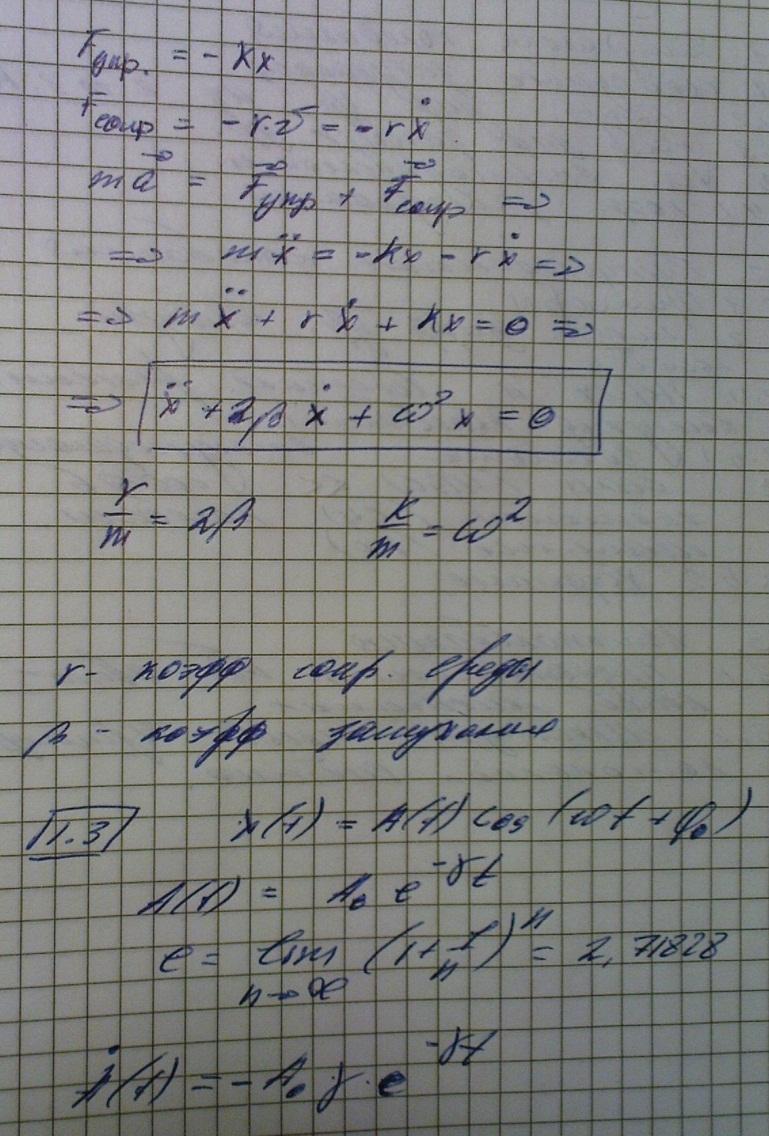 Fупр. = - kx
Fсопр = - r·v = - rẋ
ma⃗ = F⃗упр + F⃗сопр =>
=> mẍ = - kx - rẋ =>
=> mẍ + rẋ + kx = 0 =>
=> ẍ + 2βẋ + ω²x = 0
r/m = 2β k/m = ω²
r - коэфф сопр. среды
β - коэфф затухания
1.3 x(t) = A(t) cos (ωt + φ₀)
A(t) = A₀ e^(-γt)
e = lim n→∞ (1 + 1/n)^n = 2,71828
Ȧ(t) = - A₀ γ · e^(-γt)